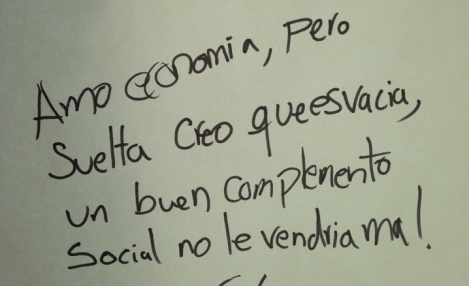 Amo economia, pero
Suelta Creo queesvacia,
un buen complemento
Social no le vendria mal!